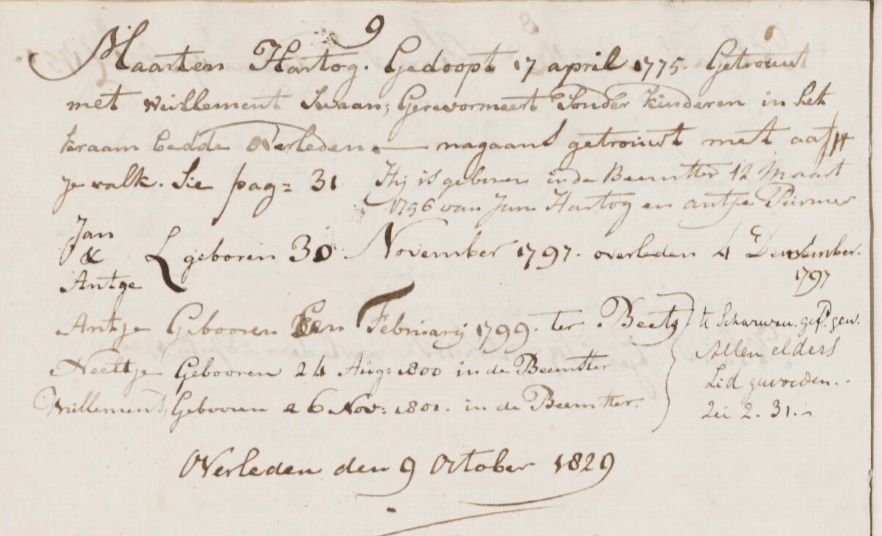 9
Maarten Hartog. Gedoopt 17 april 1775. Getrouwt
met Willement Swaan; Gerevormeert Sonder kinderen in het
kraam bedde Overleden nagaans getrouwt met aaft
je valk. Sie pag= 31
Hij is geboren in de Beemster 12 Maart
1756 van Jan Hartog en antje Purmer
Jan
&
Antge
geboren 30 November 1797. overleden 4 December.
1797
Antje Gebooren Een February 1799. ter Beets
Neeltje Gebooren 24 Aug: 1800 in de Beemster
Willement, Gebooren 26 Nov: 1801. in de Beemster.
te Scharwou. gew.
Allen elders
Lid geworden.
Zie 2. 31.
Overleden den 9 October 1829